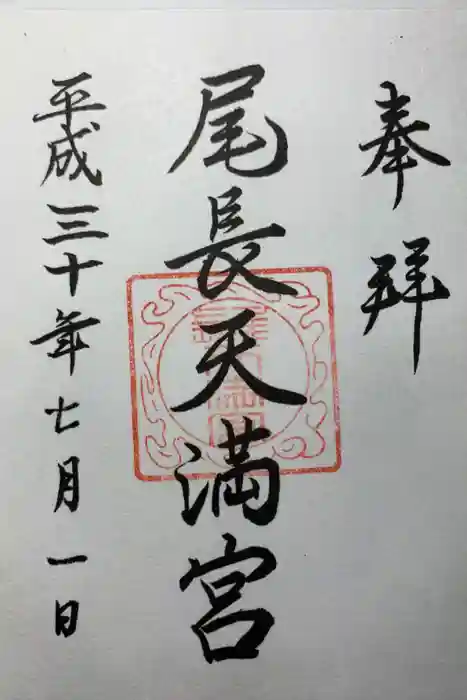 奉拝
尾長天満宮
平成三十年七月一日